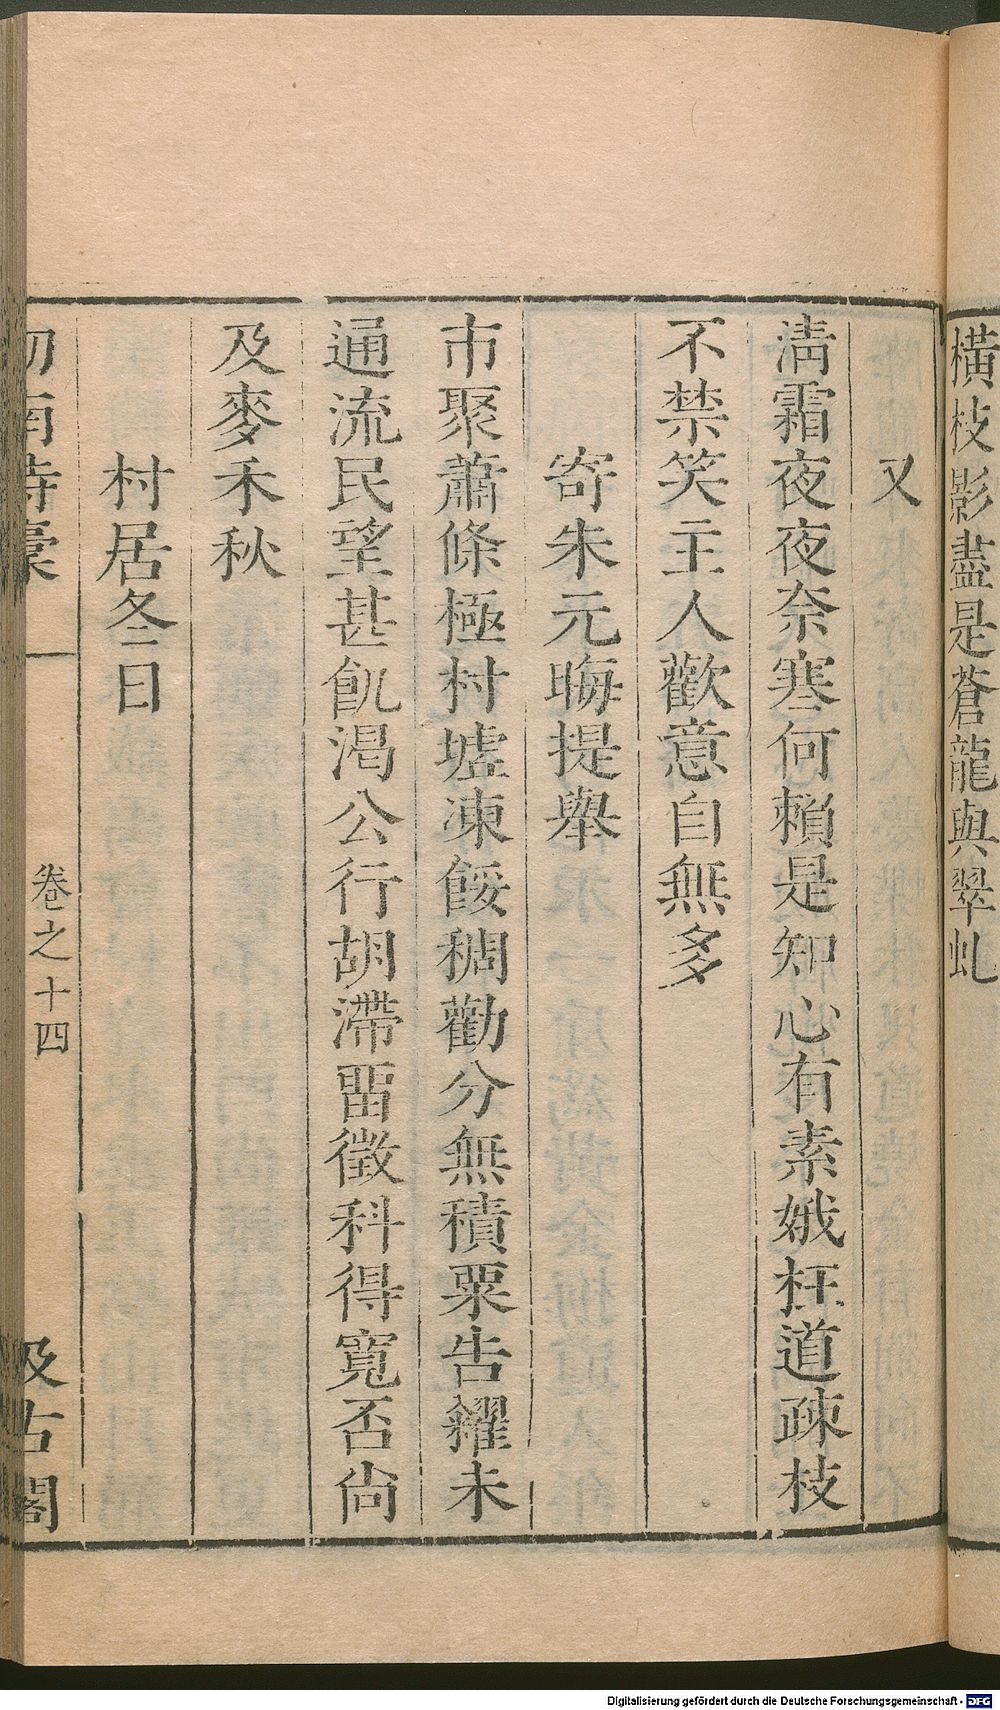 橫枝影盡是蒼龍與翠虬
又
淸霜夜夜奈寒何賴是知心有素娥枉道疎枝
不禁笑主人歡意自無多
寄朱元晦提舉
市聚蕭條極村墟凍餒稠勸分無積粟告糴未
通流民望甚飢渴公行胡滯畱徵科得寬否尙
及麥禾秋
村居冬日
劒南詩稾
卷之十四
汲古閣
Digitalisierung gefördert durch die Deutsche Forschungsgemeinschaft - DFG